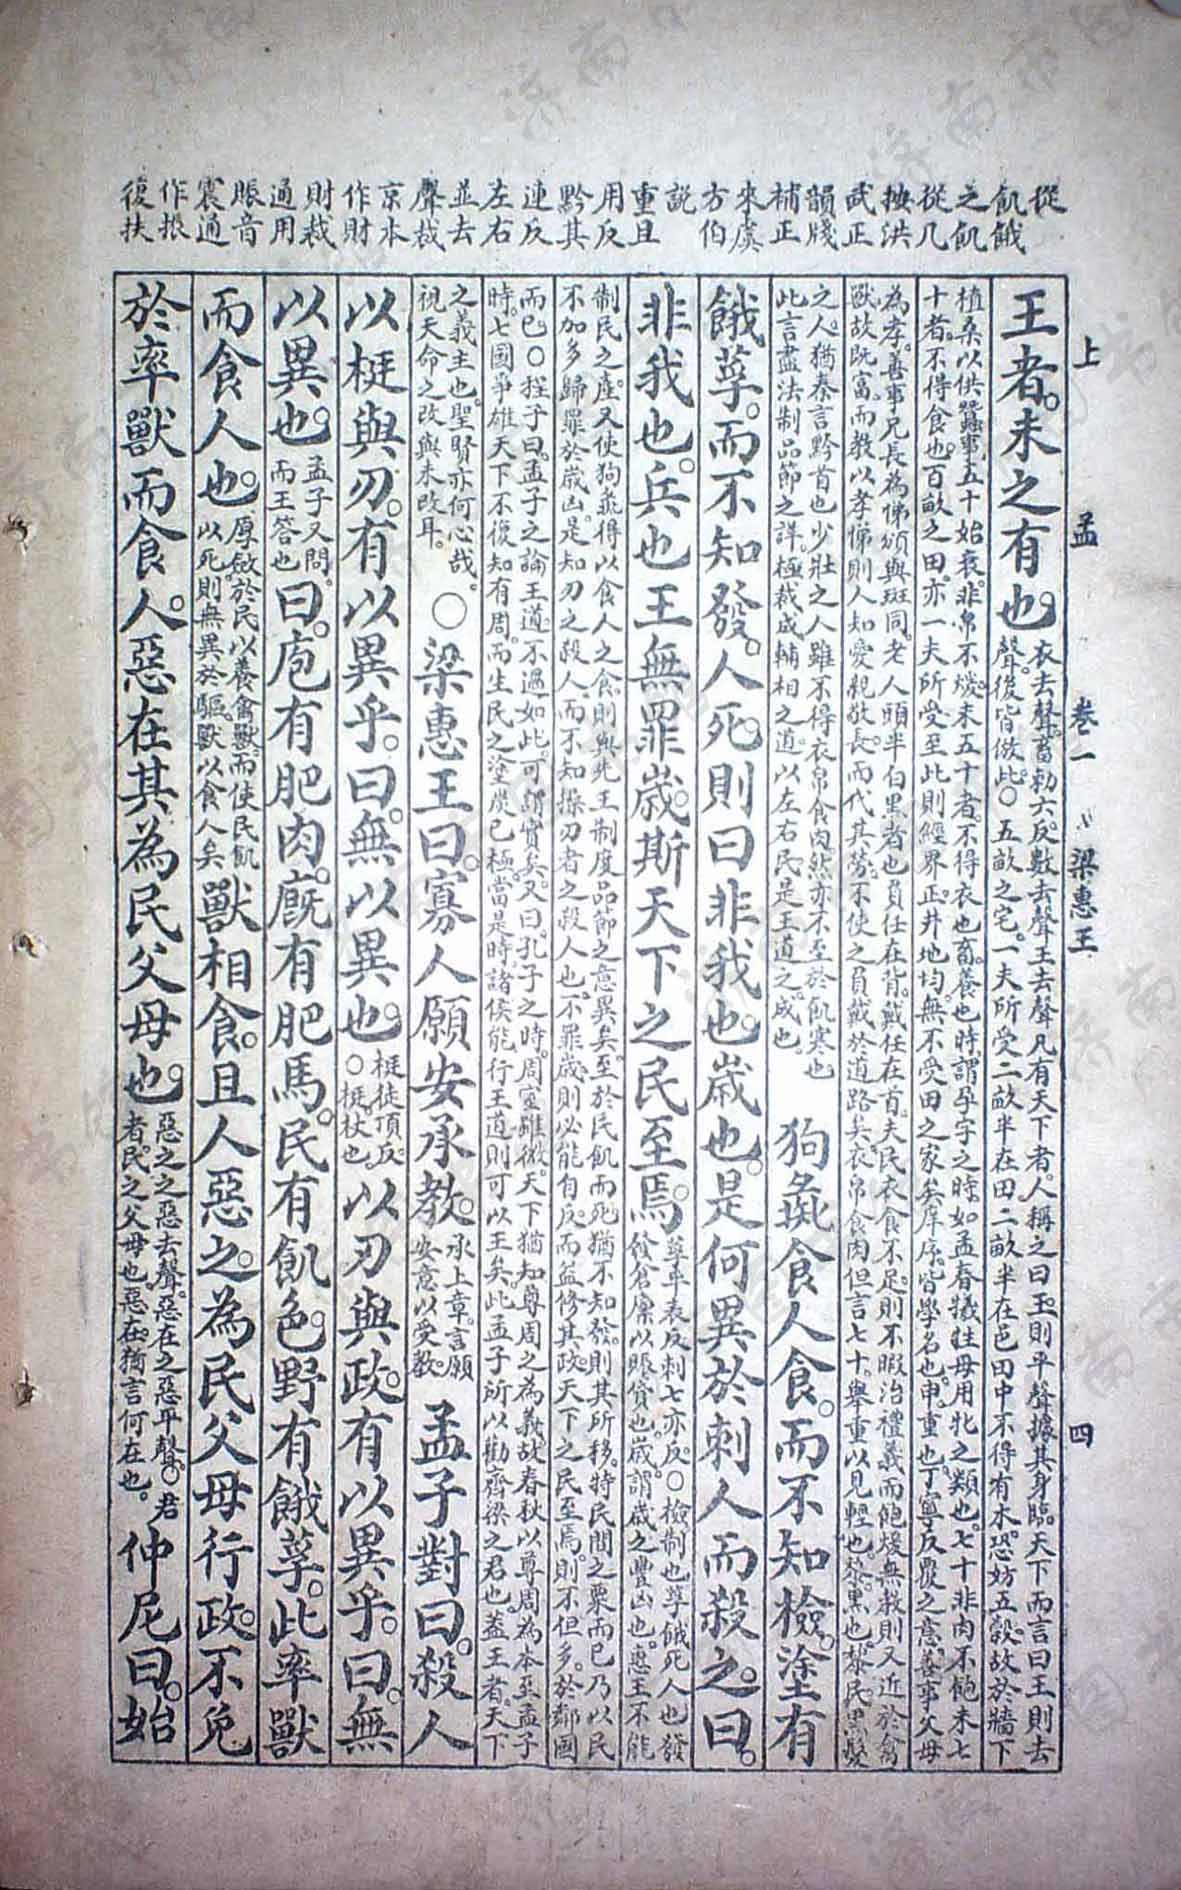 從
飢餓
之飢
從几
按洪
武正
韻牋
補正
來虞
方伯
說
重且
用反
黔其
連反
左右
並去
聲裁
京本
作財
財裁
通用
賑音
震通
作振
復扶
上 孟 卷一 梁惠王 四
王者。未之有也。
衣去聲。畜勅六反。數去聲。王去聲。凡有天下者。人稱之曰王。則平聲。據其身臨天下而言曰王。則去
聲。後皆倣此。○五畝之宅。一夫所受。二畝半在田。二畝半在邑。田中不得有木。恐妨五穀。故於牆下
植桑以供蠶事。五十始衰。非帛不煖。未五十者。不得衣也。畜。養也。時。謂孕字之時。如孟春犧牲毋用牝之類也。七十非肉不飽。未七
十者。不得食也。百畝之田。亦一夫所受。至此則經界正。井地均。無不受田之家矣。庠序。皆學名也。申。重也。丁寧反覆之意。善事父母
為孝。善事兄長為悌。頒與斑同。老人頭半白黑者也。負任在背。戴任在首。夫民衣食不足。則不暇治禮義。而飽煖無教。則又近於禽
獸。故既富。而教以孝悌。則人知愛親敬長。而代其勞。不使之負戴於道路矣。衣帛食肉。但言七十。舉重以見輕也。黎。黑也。黎民。黑髮
之人。猶秦言黔首也。少壯之人。雖不得衣帛食肉。然亦不至於飢寒也
此言盡法制品節之詳。極裁成輔相之道。以左右民。是王道之成也。
狗彘食人食。而不知檢。塗有
餓莩。而不知發。人死。則曰非我也。歲也。是何異於刺人而殺之。曰。
非我也。兵也。王無罪歲。斯天下之民至焉。
莩平表反。刺七亦反。○檢。制也。莩。餓死人也。發
發倉廩以賑貸也。歲。謂歲之豐凶也。惠王不能
制民之產。又使狗彘得以食人之食。則與先王制度品節之意異矣。至於民飢而死。猶不知發。則其所移。特民間之粟而已。乃以民
不加多。歸罪於歲凶。是知刃之殺人。而不知操刃者之殺人也。不罪歲。則必能自反。而益修其政。天下之民至焉。則不但多於鄰國
而已。○程子曰。孟子之論王道。不過如此。可謂實矣。又曰。孔子之時。周室雖微。天下猶知尊周之為義。故春秋以尊周為本。至孟子
時。七國爭雄。天下不復知有周。而生民之塗炭已極。當是時。諸侯能行王道。則可以王矣。此孟子所以勸齊梁之君也。蓋王者。天下
之義主也。聖賢亦何心哉。
視天命之改與未改耳。
○梁惠王曰。寡人願安承教。
承上章。言願
安意以受教。
孟子對曰。殺人
以梃與刃。有以異乎。曰。無以異也。
梃徒頂反。
○梃。杖也。
以刃與政。有以異乎。曰。無
以異也。
孟子又問。
而王答也
曰。庖有肥肉。廐有肥馬。民有飢色。野有餓莩。此率獸
而食人也。
厚斂於民以養禽獸。而使民飢
以死。則無異於驅獸以食人矣
獸相食。且人惡之。為民父母行政。不免
於率獸而食人。惡在其為民父母也。
惡之之惡去聲。惡在之惡平聲。○君
者。民之父母也。惡在。猶言何在也。
仲尼曰。始